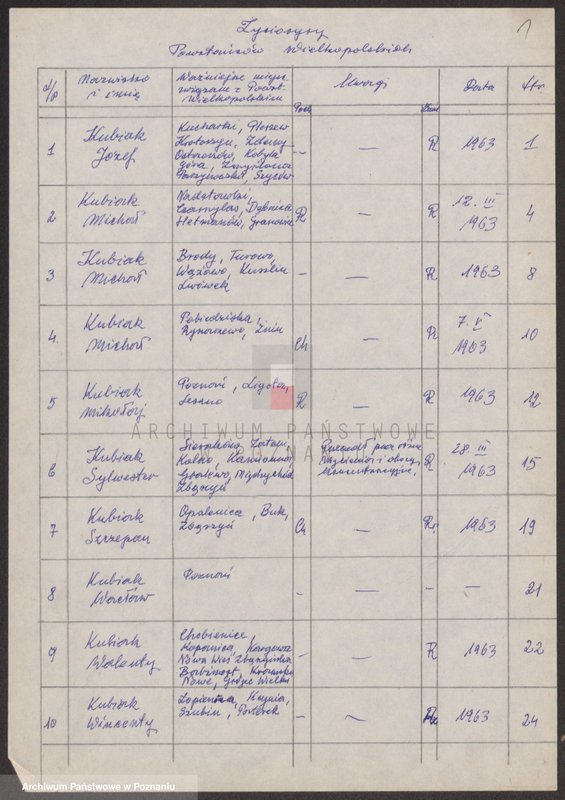 1
Życiorysy
Powstańców Wielkopolskich
L/p
Nazwisko
i imię
Ważniejsze miejsc.
związane z Powst.
Wielkopolskim
Uwagi
Data
Str.
1
Kubiak
Józef
Kucharki, Pleszew
Krotoszyn, Zduny
Ostrzeszów, Kobyla
Góra,
Parzynowska, Syców
—
R
1963
1
2
Kubiak
Michał
Czarnylas, Dębnica
Hetmanów, Granowiec
R
—
R
12. III
1963
4
3
Kubiak
Michał
Brody, Turowo,
Wąsowo, Kuślin
Lwówek
-
—
R
1963
8
4.
Kubiak
Michał
Pobiedziska,
Rynarzewo, Żnin
Ch
—
R
7. V
1963
10
5
Kubiak
Mikołaj
Poznań, Ligota,
Leszno
R
—
R
1963
12
6
Kubiak
Sylwester
Sieraków, Zatom,
Kolno, Kamionna,
Grobлewo, Międzychód
Zbąszyń
Przeszedł przez różne
więzienia i obozy
koncentracyjne.
R
28. III
1963
15
7
Kubiak
Szczepan
Opalenica, Buk,
Zbąszyń
Ch
—
R
1963
19
8
Kubiak
Wacław
Poznań
-
—
-
—
21
9
Kubiak
Walenty
Chobienice,
Kopanica, Kargowa
Nowa Wieś Zbąszyńska
Babimost,
Nowe, Grójec Wielki
-
—
R
1963
22
10
Kubiak
Wincenty
Łopienno, Kcynia,
Szubin,
-
~
R
1963
24
ARCHIWUM PAŃSTWOWE
W POZNANIU
Archiwum Państwowe w Poznaniu